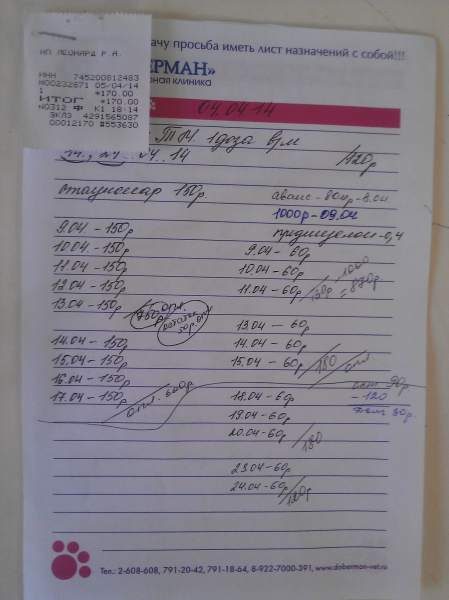 ачу просьба иметь лист назначений с собой!!!
ЕРМАН»
ная клиника
ИП ЛЕОНАРД Р.А.
ИНН 745200812483
М00232671 05/04/14
1 *170.00
ИТОГ *170.00
М0312 Ф К1 18-14
ЭКЛЗ 4291565087
00012170 #553630
04.04-14
1доза в/м
120р
стационар 150р.
аванс - 800р - 8.04
1000р - 09.04
преднизолон - 0,4
9.04 - 150р
10.04 - 150р
11.04 - 150р
12.04 - 150р
13.04 - 150р
750 опл.
14.04 - 150р
15.04 - 150р
16.04 - 150р
17.04 - 150р
опл. 600р
9.04 - 60р
10.04 - 60р
11.04 - 60р
13.04 - 60
14.04 - 60
15.04 - 60
180
опл
18.04 - 60р
19.04 - 60р
20.04 - 60р
180
23.04 - 60р
24.04 - 60р
120р
ост 90р
- 120
30р.
Тел.: 2-608-608, 791-20-42, 791-18-64, 8-922-7000-391, www.doberman-vet.ru